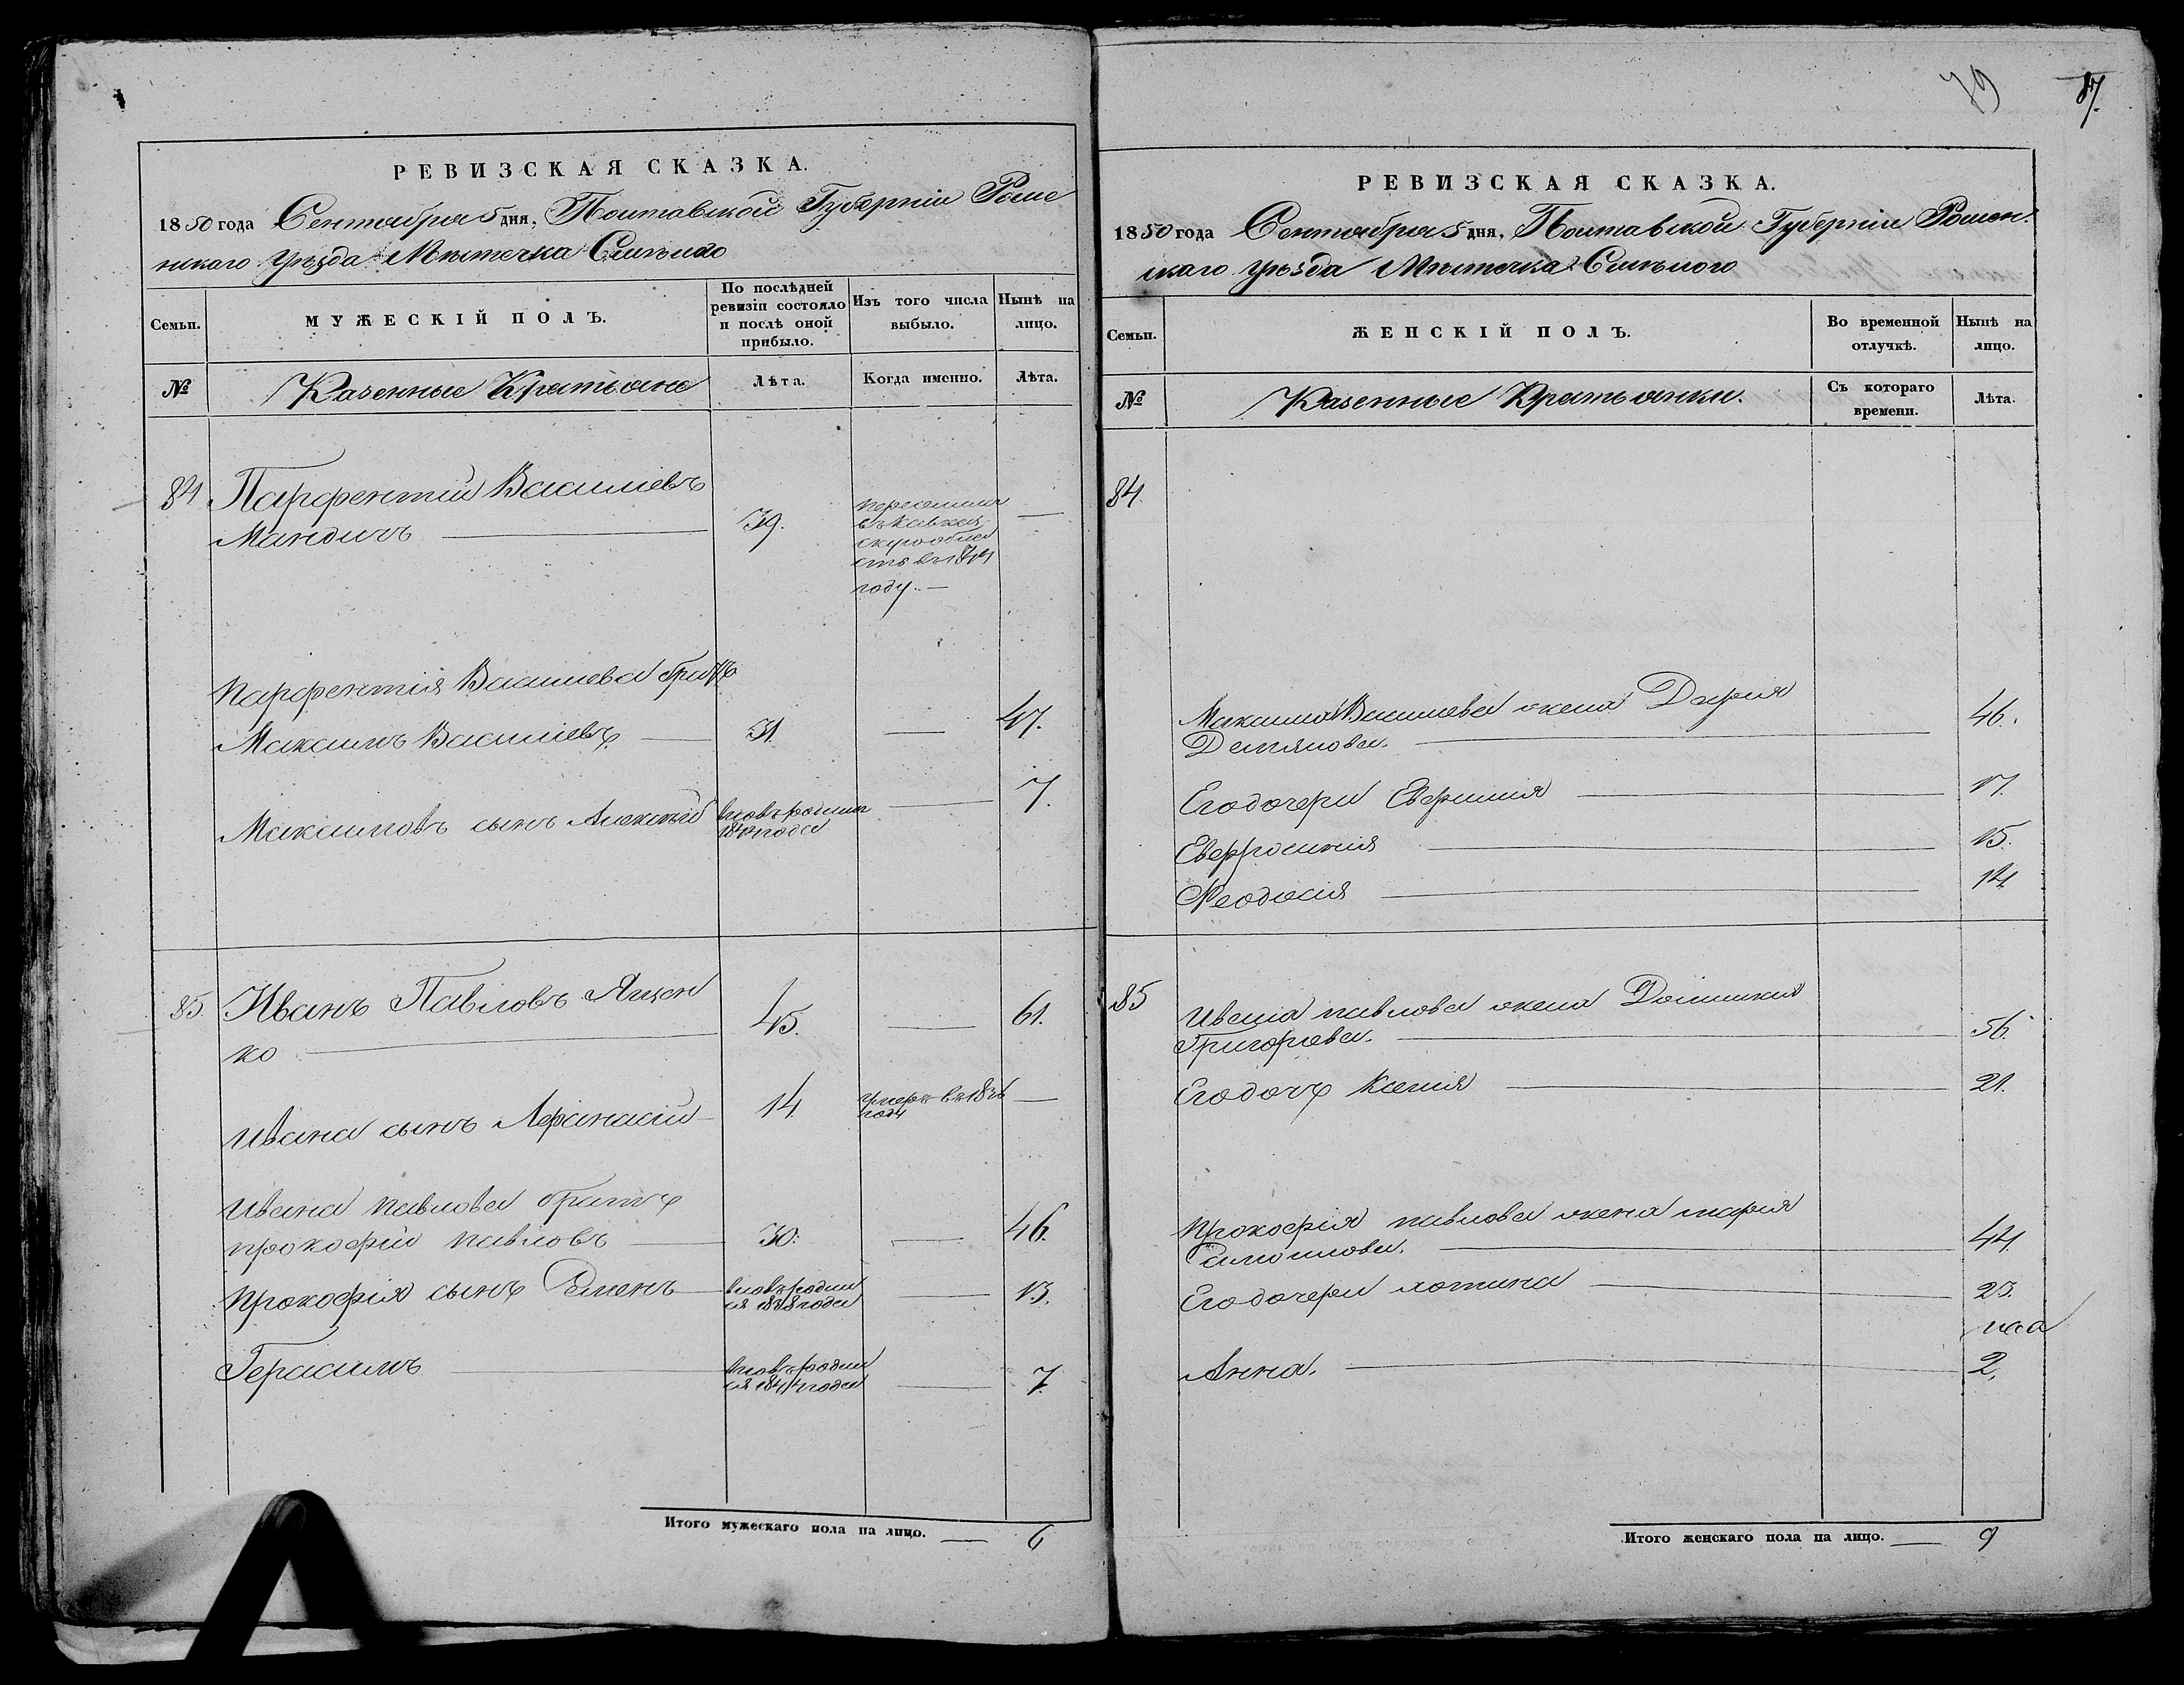 РЕВИЗСКАЯ СКАЗКА.
1850 года Сентября 5 дня, Полтавской Губерніи Роме
нскаго уѣзда Мѣстечка Смѣлаго
Семьи.
МУЖЕСКІЙ ПОЛЪ.
По послѣдней
ревизіи состояло
и послѣ оной
прибыло.
Изъ того числа
выбыло.
Нынѣ на
лицо.
№
Казенные Крестьяне
Лѣта.
Когда именно.
Лѣта.
84 Парфентій Василіевъ
Мандичъ 39.
въ
году.
Парфентія Василіева братъ
Максимъ Василіевъ 31. 47.
Максимовъ сынъ Алексѣй вновь родился 7.
года
85. Иванъ Павловъ Яцен
ко 45. 61.
Ивана сынъ Афанасій 14 умеръ въ 1836
году
Ивана Павлова братъ
прокофій павловъ 30. 46.
Прокофія сынъ Семенъ вновь родил
ся 1838 года 13.
Герасимъ вновь родил
ся 1844 года 7.
Итого мужескаго пола на лицо. 6
79 87.
РЕВИЗСКАЯ СКАЗКА.
1850 года Сентября 5 дня, Полтавской Губерніи Ромен
скаго уѣзда Мѣстечка Смѣлого
Семьи.
ЖЕНСКІЙ ПОЛЪ.
Во временной
отлучкѣ.
Нынѣ на
лицо.
№
Казенные Крестьянки.
Съ котораго
времени.
Лѣта.
84.
Максима Василіева жена Дарія
Демянова. 46.
Его дочери Евфимія 17
Евфросинія 15.
Феодосія 14
85 Ивана павлова жена Домникія
Григоріева. 56.
Его дочь Ксенія 21.
Прокофія павлова жена марія
44.
Его дочери 23.
Анна. 2.
Итого женскаго пола на лицо. 9